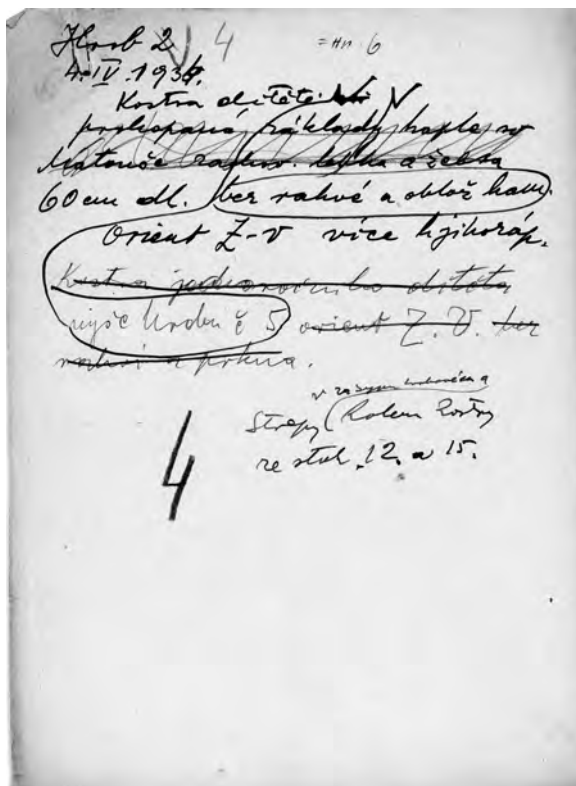 Hrob 2 4 = Hn 6
4. IV. 1934.
Kostra dítěte
prokopaná základy kaple sv
60 cm dl. bez rakve a oblož kam.
Orient Z-V více k jihozáp.
Kostra jednoročního dítěte
výše hrobu č 5 orient Z. V. bez
rakve a prkna.
Střepy kolem kostry
ze stol. 12. a 15.
4